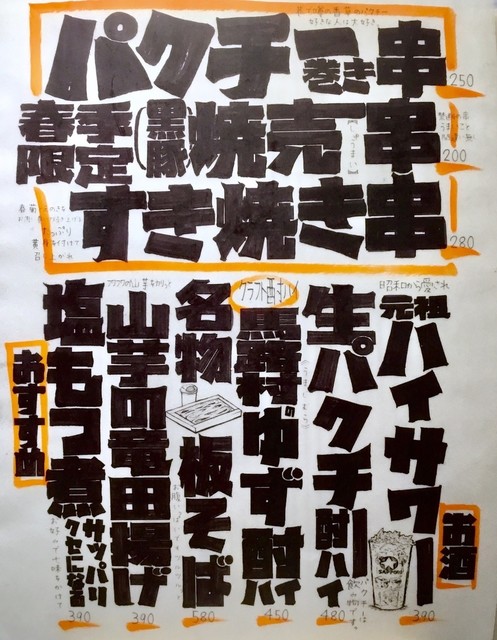 好きな人は大好き。
パクチー巻き串
250
春季限定
黒豚
焼売串
200
すき焼き串
280
お酒
昭和から愛され
元祖
ハイサワー
390
生パクチー酎ハイ
480
クラフト酎ハイ
馬路村のゆず酎ハイ
450
名物
板そば
580
山芋の竜田揚げ
390
おすすめ
塩もつ煮
サッパリ
クセになる
390